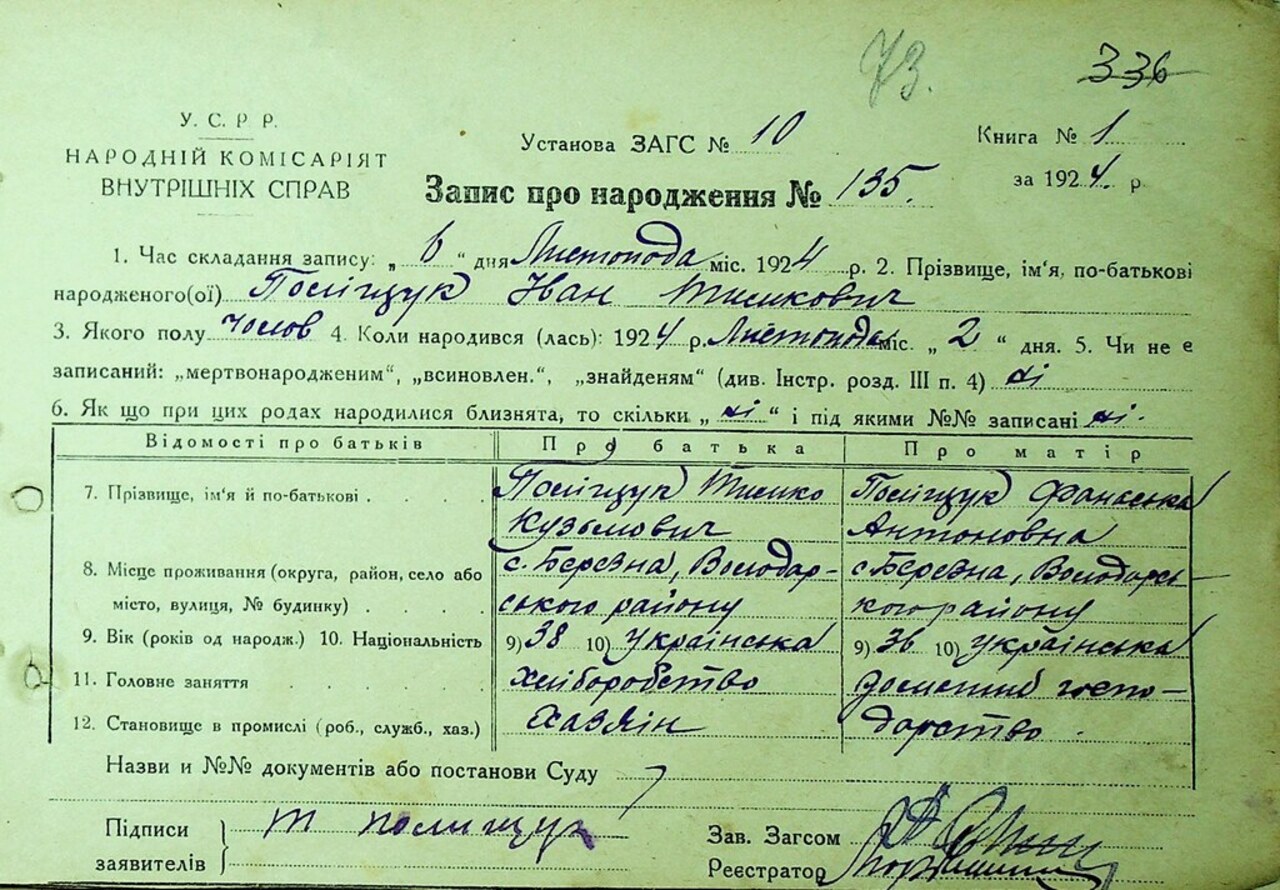 73.
336
У. С. Р Р.
НАРОДНІЙ КОМІСАРІЯТ
ВНУТРІШНІХ СПРАВ
Установа ЗАГС № 10
Книга № 1
за 1924 р
Запис про народження № 135.
1. Час складання запису: „ 6 " дня Листопода міс. 1924 р. 2. Прізвище, ім'я, по-батькові
народженого(ої) Поліщук Іван Тимкович
3. Якого полу чолов 4. Коли народився (лась): 1924 р. Листопода міс. „ 2 " дня. 5. Чи не є
записаний: „мертвонародженим", „всиновлен.", „знайденям" (див. Інстр. розд. III п. 4) ні
6. Як що при цих родах народилися близнята, то скільки „ ні " і під якими №№ записані ні.
Відомості про батьків Про батька Про матір
7. Прізвище, ім'я й по-батькові . . . . Поліщук Тимко Поліщук
Кузьмович Антоновна
8. Місце проживання (округа, район, село або с. Березна, Володар- с. Березна, Володарсь-
місто, вулиця, № будинку) . . . . ського району кого району
9. Вік (років од народж.) 10. Національність 9) 38 10) українська 9) 36 10) українська
11. Головне заняття . . . . . Хліборобство Домашний госпо-
12. Становище в промислі (роб., служб., хаз.) Хазяїн дарство.
Назви и №№ документів або постанови Суду
Підписи
заявителів
Т Полищук
Зав. Загсом
Реєстратор